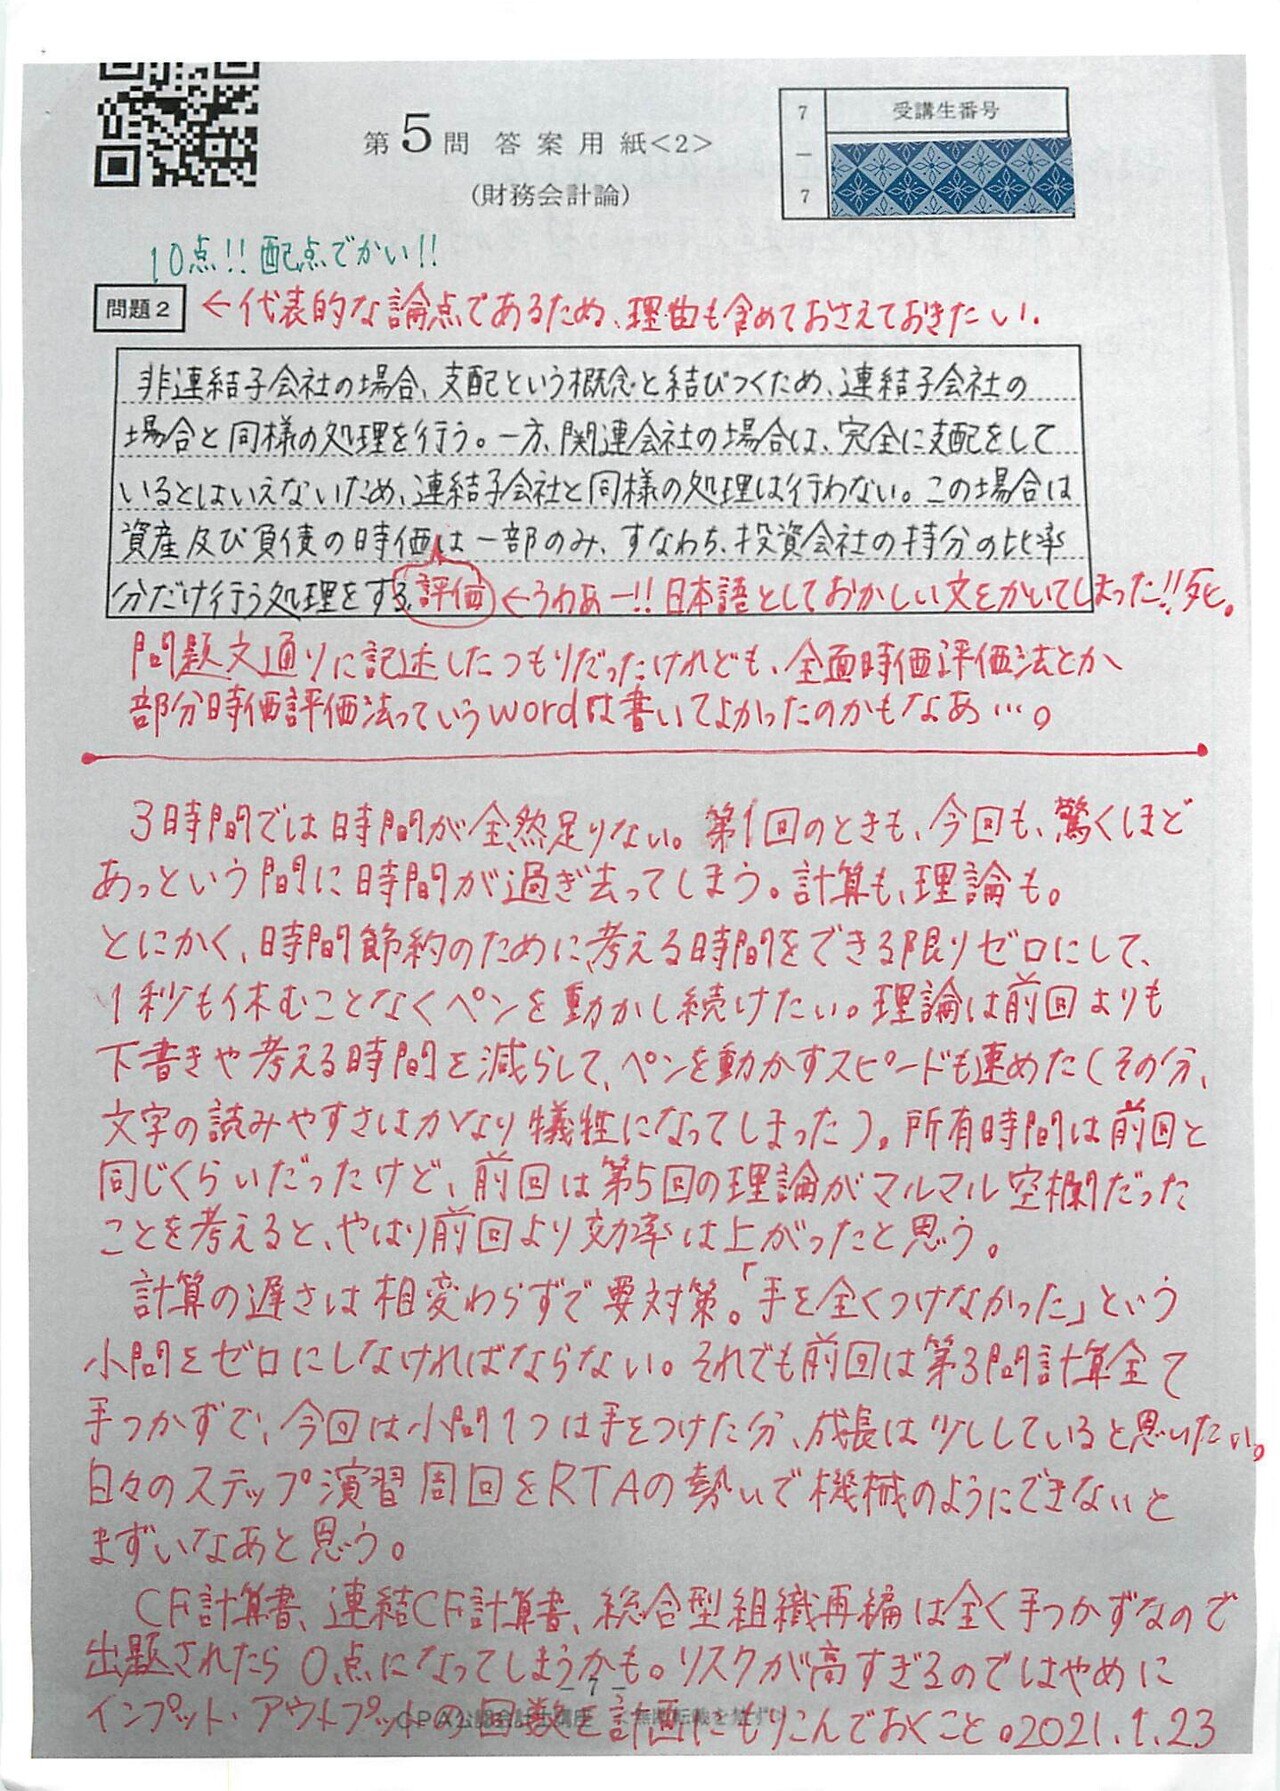 第5問 答案用紙<2>
(財務会計論)
7－7
受講生番号
10点!! 配点でかい!!
問題2
←代表的な論点であるため、理由も含めておさえておきたい.
非連結子会社の場合、支配という概念と結びつくため、連結子会社の
場合と同様の処理を行う。一方、関連会社の場合は、完全に支配をして
いるとはいえないため、連結子会社と同様の処理は行わない。この場合は
資産及び負債の時価は一部のみ、すなわち、投資会社の持分の比率
分だけ行う処理をする。
評価
←うわあー!!日本語としておかしい文をかいてしまった!!死。
問題文通りに記述したつもりだったけれども、全面時価評価法とか
部分時価評価法っていうwordは書いてよかったのかもなあ…。
3時間では時間が全然足りない。第1回のときも、今回も、驚くほど
あっという間に時間が過ぎ去ってしまう。計算も、理論も。
とにかく、時間節約のために、考える時間をできる限りゼロにして、
1秒も休むことなくペンを動かし続けたい。理論は前回よりも
下書きや考える時間を減らして、ペンを動かすスピードも速めた(その分、
文字の読みやすさはかなり犠牲になってしまった)。所有時間は前回と
同じくらいだったけど、前回は第5回の理論がマルマル空欄だった
ことを考えると、やはり前回より効率は上がったと思う。
計算の遅さは相変わらずで要対策。「手を全くつけなかった」という
小問をゼロにしなければならない。それでも前回は第3問計算全て
手つかずで、今回は小問1つは手をつけた分、成長は少ししていると思いたい。
日々のステップ演習周回をRTAの勢いで機械のようにできないと
まずいなあと思う。
CF計算書、連結CF計算書、総合型組織再編は全く手つかずなので
出題されたら0点になってしまうかも。リスクが高すぎるのではやめに
インプット、アウトプットの回数を計画にもりこんでおくこと。2021.1.23
－7－
CPA公認会計士講座 <無断転載を禁ず>